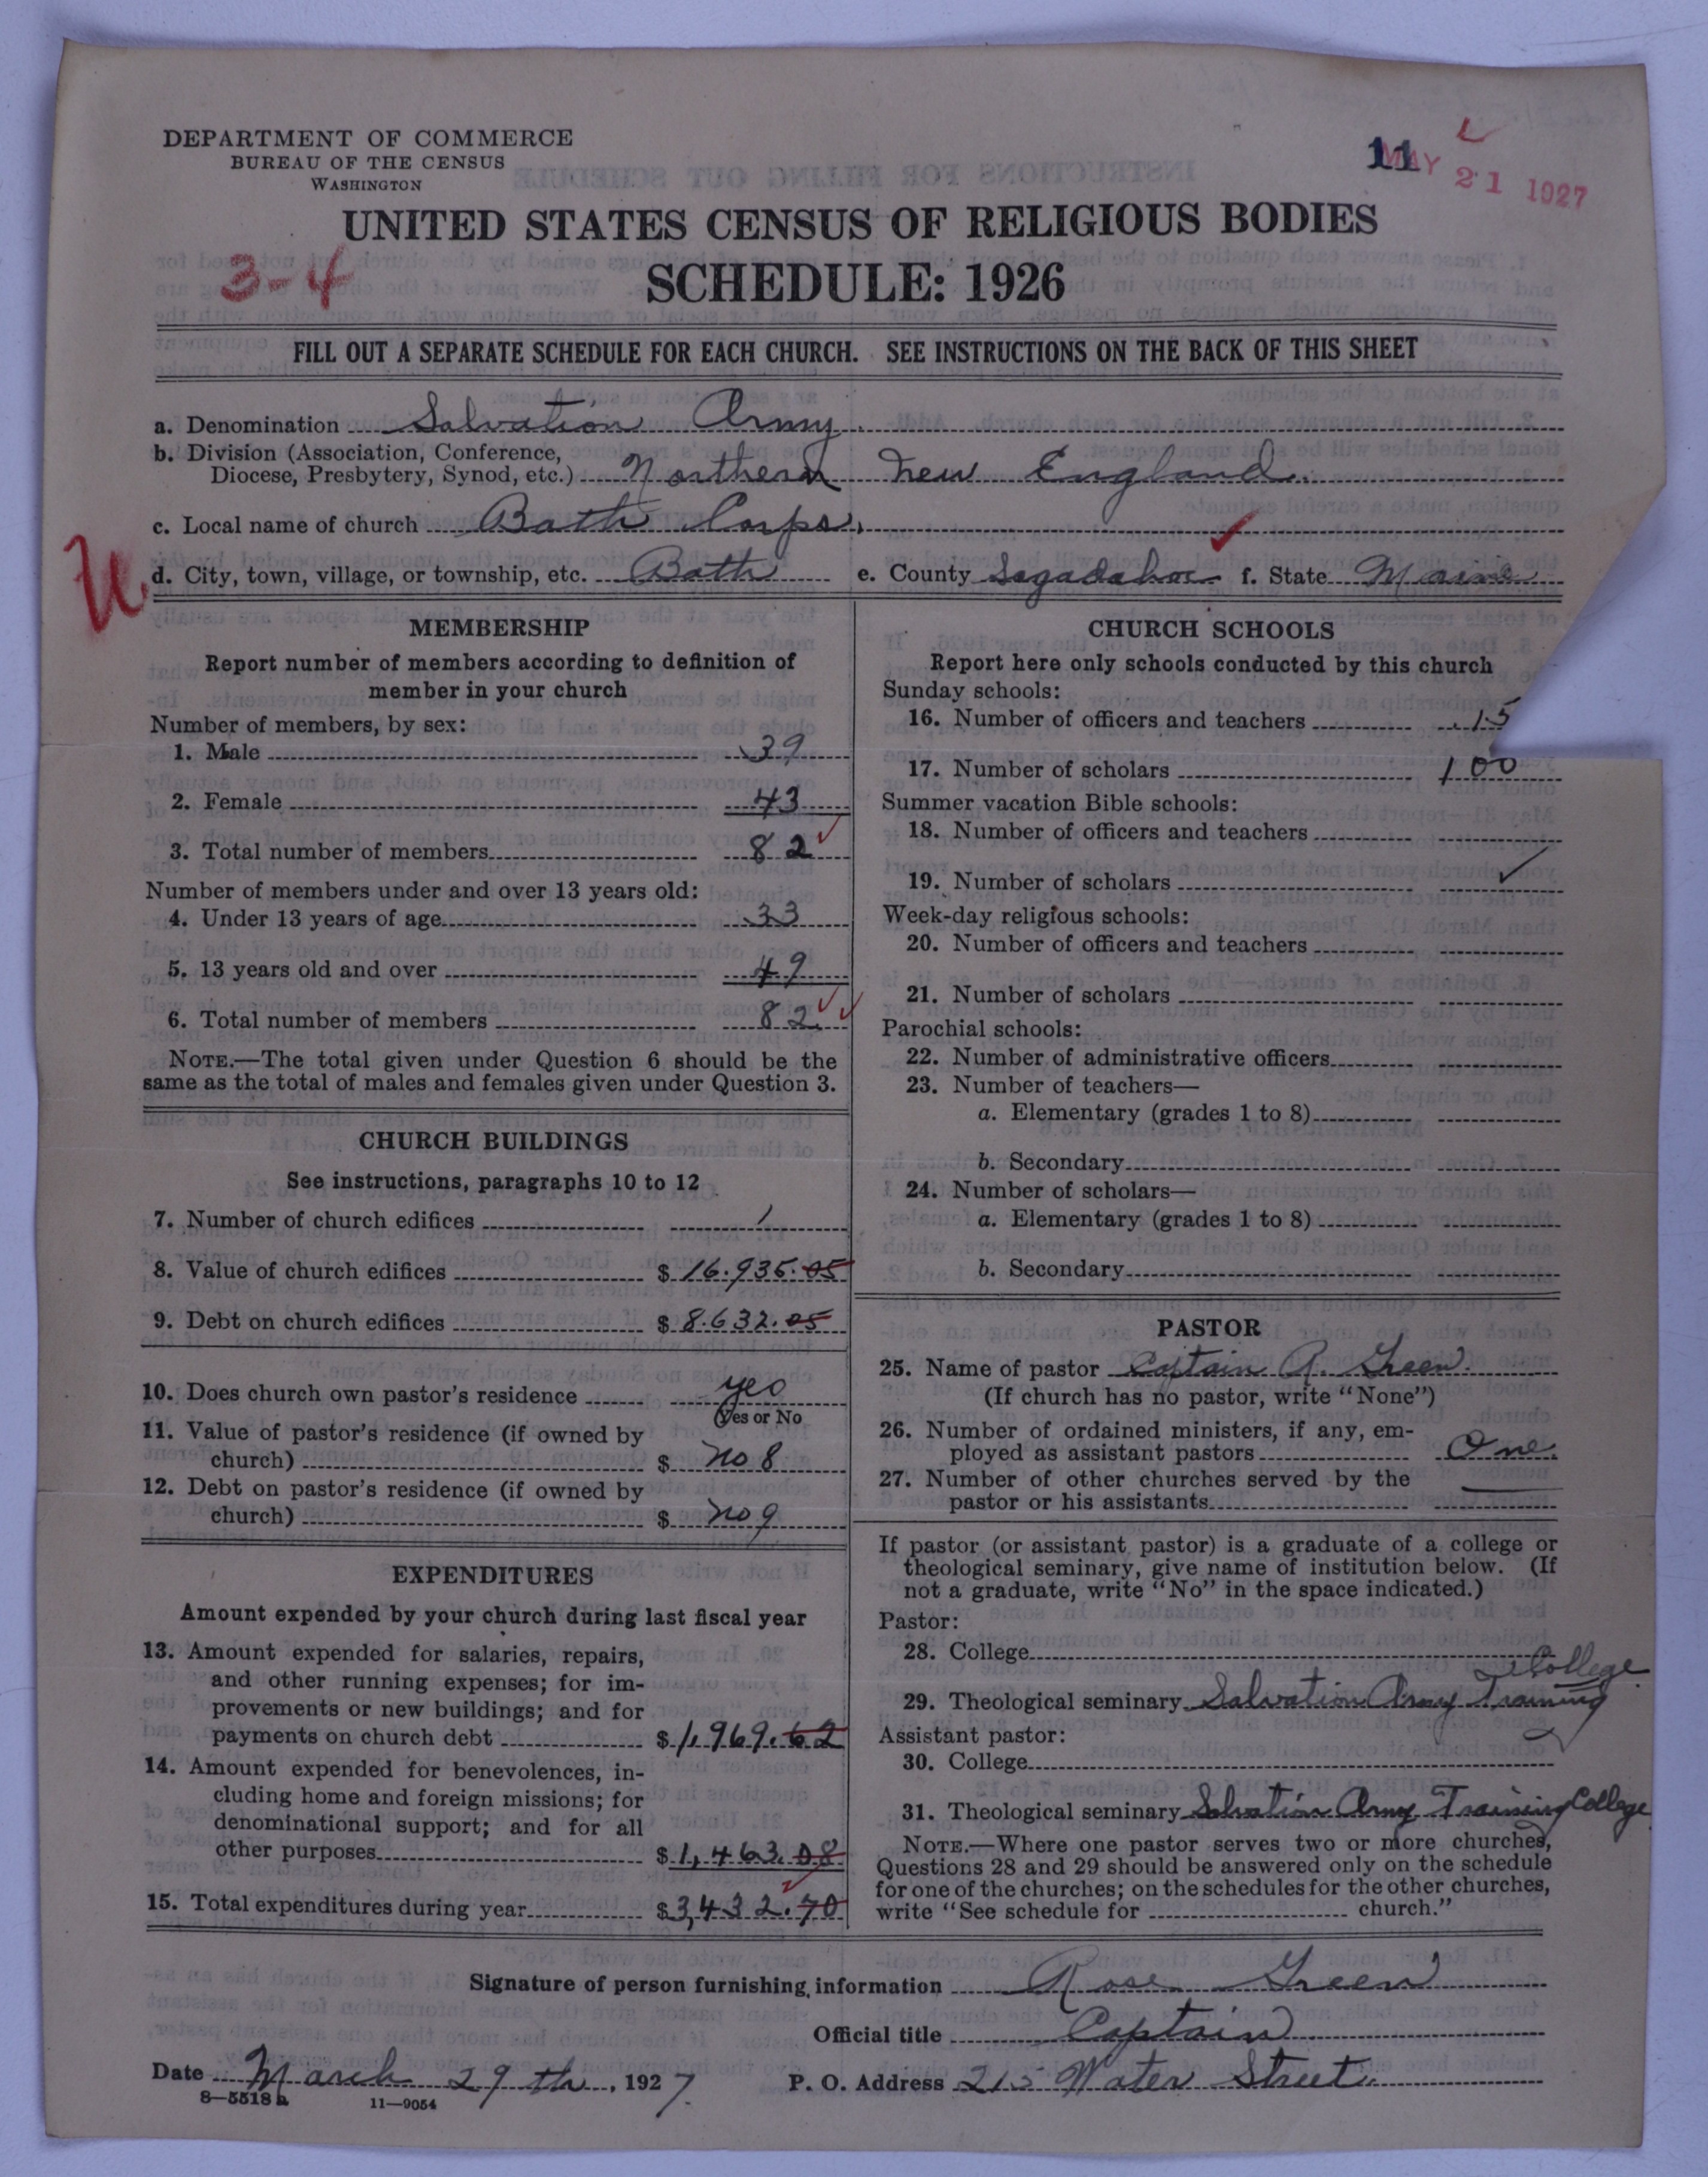 DEPARTMENT OF COMMERCE
BUREAU OF THE CENSUS
WASHINGTON
11 MAY 21 1927
UNITED STATES CENSUS OF RELIGIOUS BODIES
3-4
SCHEDULE: 1926
FILL OUT A SEPARATE SCHEDULE FOR EACH CHURCH. SEE INSTRUCTIONS ON THE BACK OF THIS SHEET
a. Denomination Salvation Army
b. Division (Association, Conference,
Diocese, Presbytery, Synod, etc.) Northern new England
c. Local name of church Bath Corps
d. City, town, village, or township, etc. Bath e. County Sagadahoc f. State Maine
MEMBERSHIP
Report number of members according to definition of
member in your church
Number of members, by sex:
1. Male 39
2. Female 43
3. Total number of members 82
Number of members under and over 13 years old:
4. Under 13 years of age 33
5. 13 years old and over 49
6. Total number of members 82
NOTE.—The total given under Question 6 should be the
same as the total of males and females given under Question 3.
CHURCH BUILDINGS
See instructions, paragraphs 10 to 12
7. Number of church edifices 1
8. Value of church edifices $ 16.935.05
9. Debt on church edifices $ 8.632.05
10. Does church own pastor's residence yes
(Yes or No
11. Value of pastor's residence (if owned by
church) $ no 8
12. Debt on pastor's residence (if owned by
church) $ no 9
EXPENDITURES
Amount expended by your church during last fiscal year
13. Amount expended for salaries, repairs,
and other running expenses; for im-
provements or new buildings; and for
payments on church debt $ 1,969.62
14. Amount expended for benevolences, in-
cluding home and foreign missions; for
denominational support; and for all
other purposes $ 1,463.08
15. Total expenditures during year $ 3,432.70
CHURCH SCHOOLS
Report here only schools conducted by this church
Sunday schools:
16. Number of officers and teachers 15
17. Number of scholars 100
Summer vacation Bible schools:
18. Number of officers and teachers
19. Number of scholars
Week-day religious schools:
20. Number of officers and teachers
21. Number of scholars
Parochial schools:
22. Number of administrative officers
23. Number of teachers—
a. Elementary (grades 1 to 8)
b. Secondary
24. Number of scholars—
a. Elementary (grades 1 to 8)
b. Secondary
PASTOR
25. Name of pastor Captain R. Green
(If church has no pastor, write "None")
26. Number of ordained ministers, if any, em-
ployed as assistant pastors One.
27. Number of other churches served by the
pastor or his assistants
If pastor (or assistant pastor) is a graduate of a college or
theological seminary, give name of institution below. (If
not a graduate, write "No" in the space indicated.)
Pastor:
28. College
College
29. Theological seminary Salvation Army Training
Assistant pastor:
30. College
31. Theological seminary Salvation Army Training College
NOTE.—Where one pastor serves two or more churches,
Questions 28 and 29 should be answered only on the schedule
for one of the churches; on the schedules for the other churches,
write "See schedule for church."
Signature of person furnishing information Rose Green
Official title Captain
Date March 29th, 1927. P. O. Address 215 Water Street.
8—5518 a 11—9054